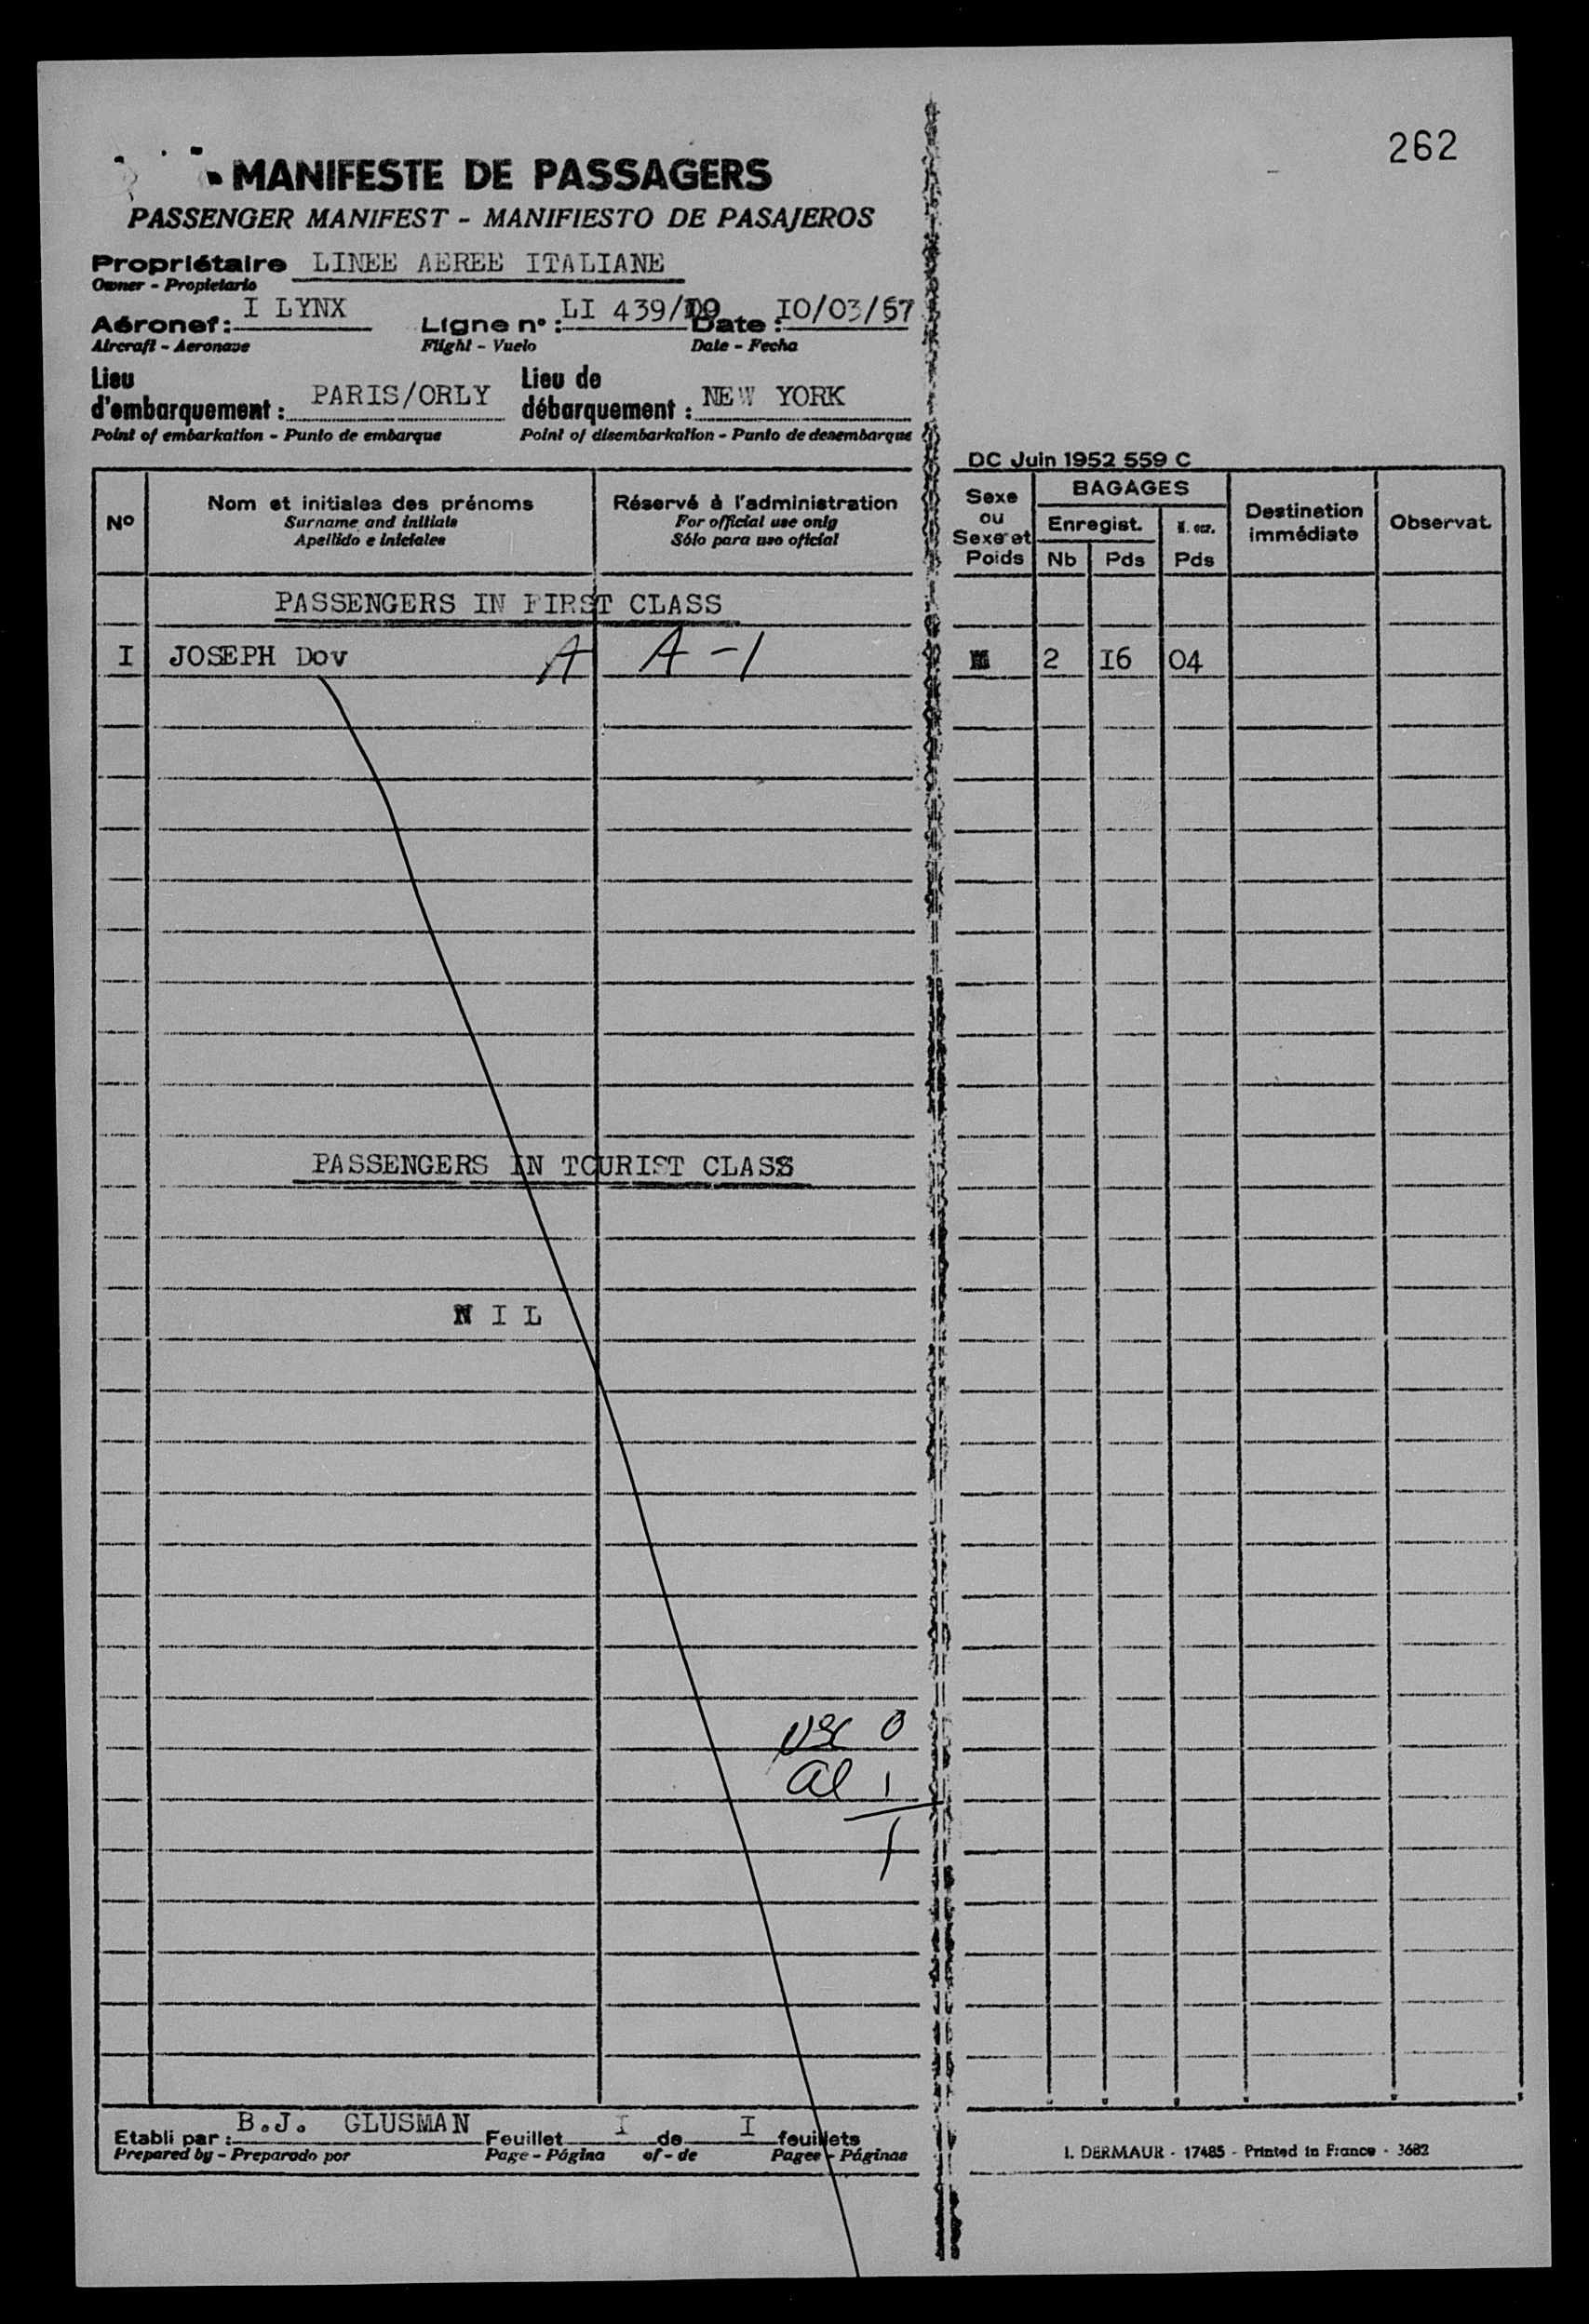 262
MANIFESTE DE PASSAGERS
PASSENGER MANIFEST - MANIFIESTO DE PASAJEROS
Propriétaire LINEE AEREE ITALIANE
Owner - Propietario
Aéronef: I LYNX Ligne n° : LI 439/09 Date : IO/03/57
Aircraft - Aeronave Flight - Vuelo Date - Fecha
Lieu d'embarquement : PARIS/ORLY Lieu de débarquement : NEW YORK
Point of embarkation - Punto de embarque Point of disembarkation - Punto de desembarque
DC Juin 1952 559 C
Nº Nom et initiales des prénoms Réservé à l'administration Sexe ou Sexe et Poids BAGAGES Destination immédiate Observat.
Surname and initials For official use only Enregist. N. enr.
Apellido e iniciales Sólo para uso oficial Nb Pds Pds
PASSENGERS IN FIRST CLASS
I JOSEPH Dov A A-1 M 2 I6 04
PASSENGERS IN TOURIST CLASS
N I L
USC 0
al 1
1
Etabli par : B.J. GLUSMAN Feuillet I de I feuillets
Prepared by - Preparado por Page - Página of - de Pages - Páginas
I. DERMAUR - 17485 - Printed in France - 3682